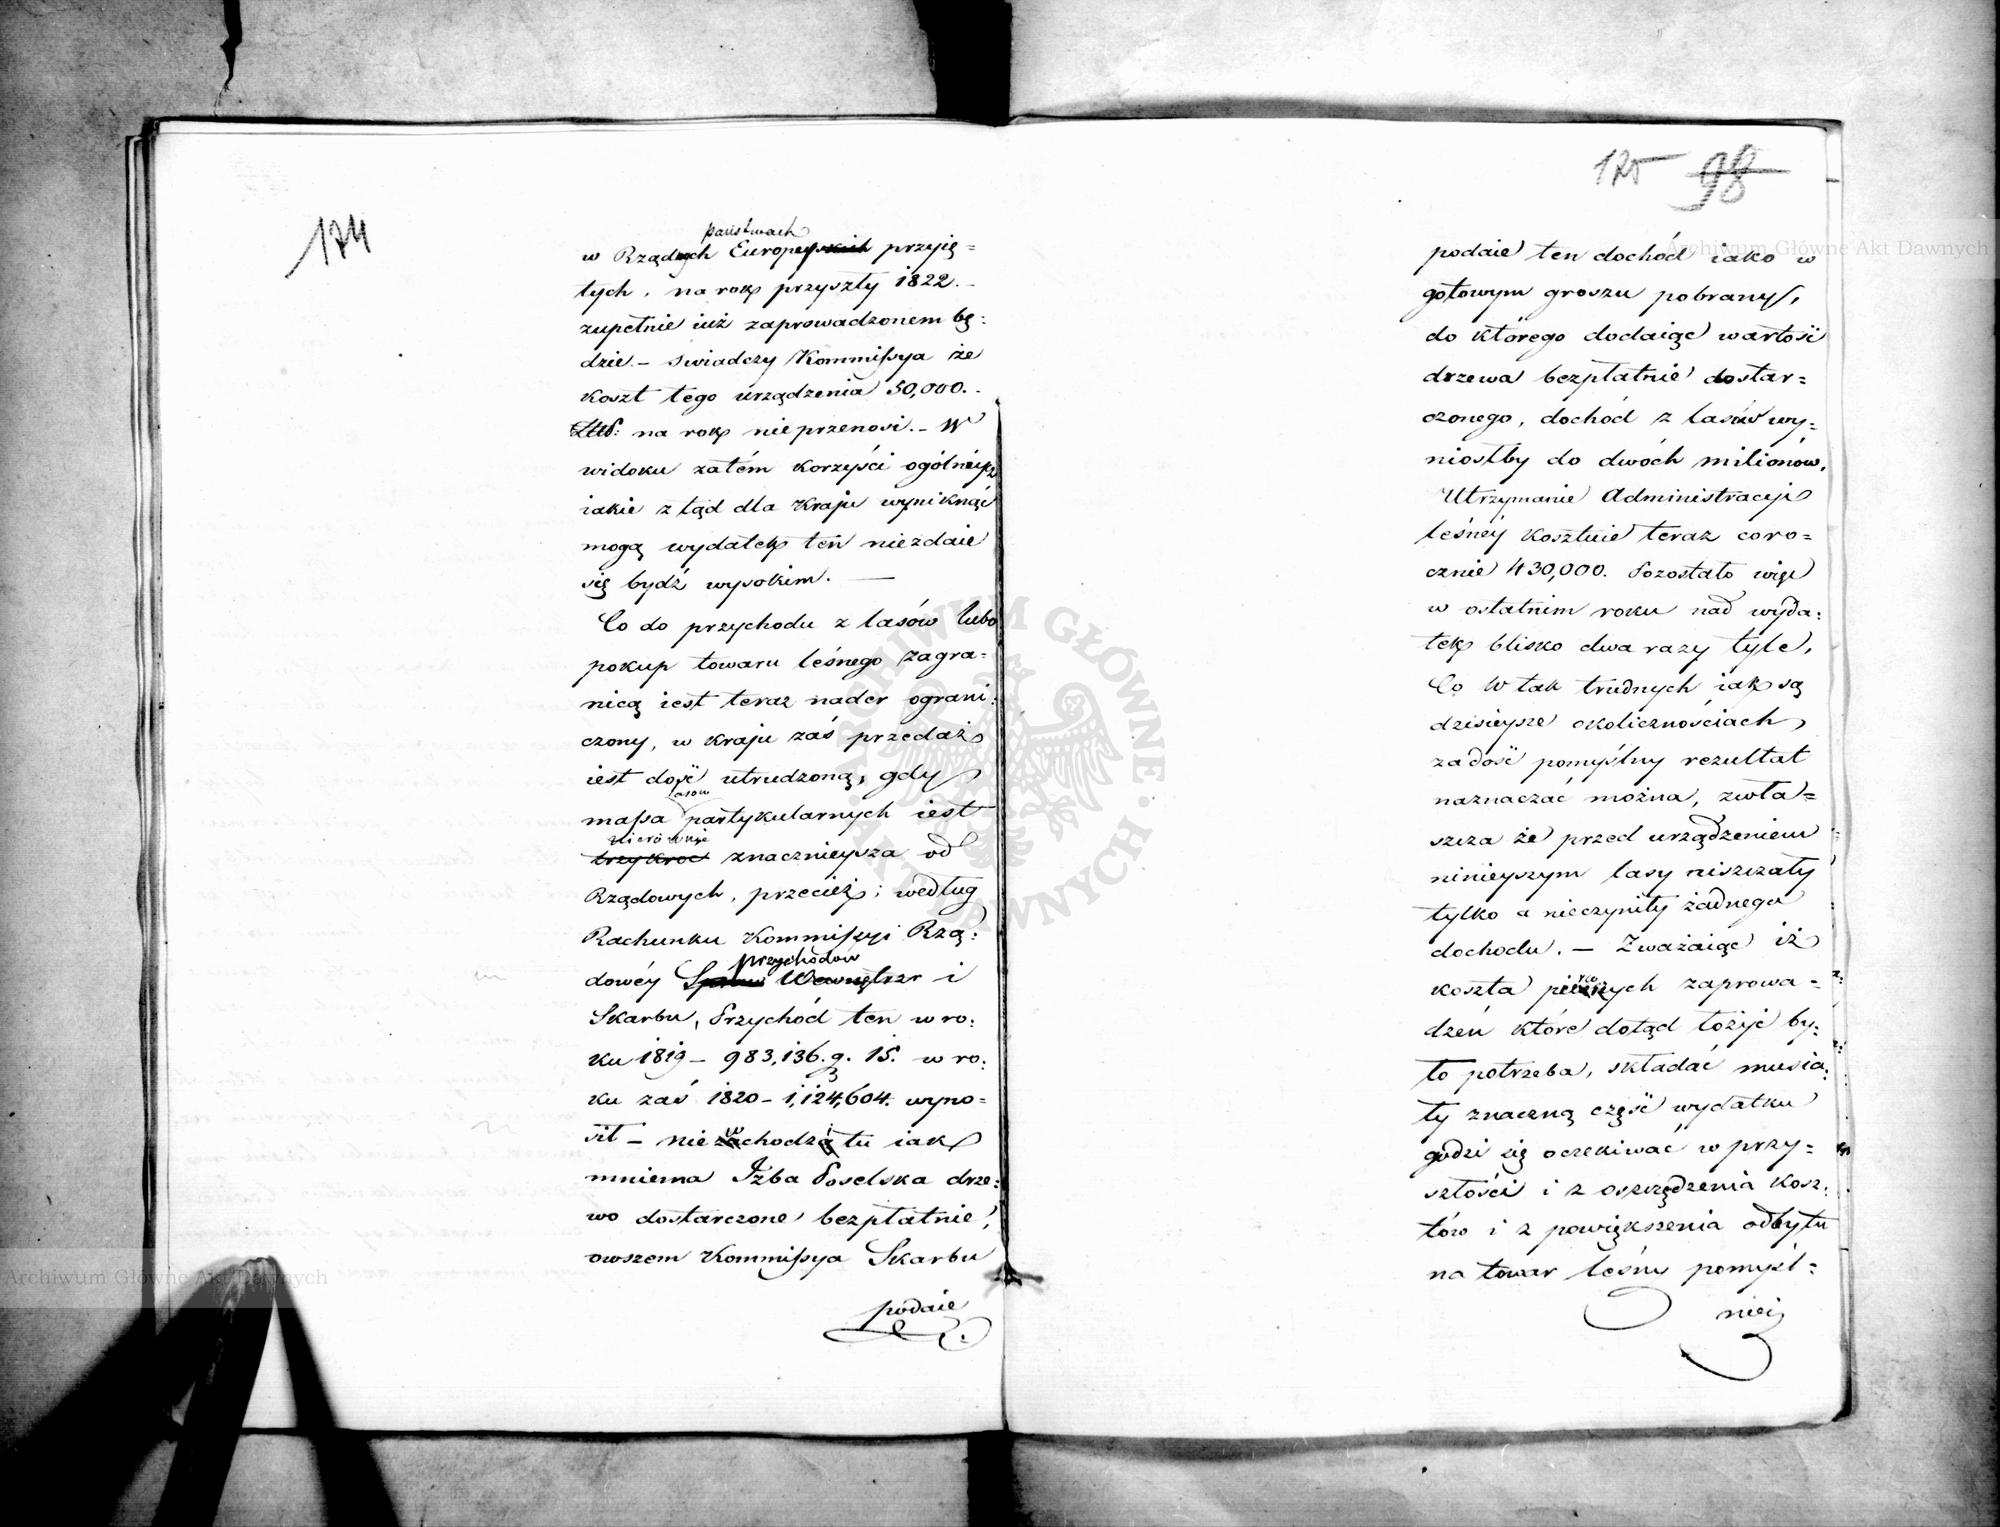 174
państwach
w Rządnych Europeyskich przyię=
tych, na rok przyszły 1822.
zupełnie iuż zaprowadzonem bę:
dzie. – swiadczy Kommissya że
koszt tego urządzenia 50,000.
na rok nieprzenosi. – W
widoku zatém korzyści ogólnéy
iakie z tąd dla Kraju wyniknąć
mogą wydatek ten niezdaie
się bydź wysokim. —
Co do przychodu z lasów lubo
pokup towaru leśnego zagra=
nicą iest teraz nader ograni:
czony, w kraju zaś przedaż
iest dość utrudzoną, gdy
lasów
massa partykularnych iest
nierównie
trzykroć znacznieysza od
Rządowych, przecież; według
Rachunku Kommissyi Rzą:
przychodów
dowéy Spraw Wewnętrzn i
Skarbu, Przychód ten w ro:
ku 1819 – 983,136. g. 15. w ro:
3
ku zaś 1820 – 1,124,604. wyno=
sił – nie wchodzi tu iak
mniema Izba Poselska drze:
wo dostarczone bezpłatnie,
owszem Kommissya Skarbu
podaie
175 98
podaie ten dochód iako w
gotowym groszu pobrany,
do którego dodaiąc wartość
drzewa bezpłatnie dostar=
czonego, dochód z lasów wy=
niosłby do dwóch milionów.
Utrzymanie Administracyi
leśnéy kosztuie teraz coro=
cznie 430,000. Pozostało więc
w ostatnim roku nad wyda:
tek blisko dwa razy tyle,
Co w tak trudnych iak są
dzisieysze okolicznościach,
zadość pomyślny rezultat
naznaczać można, zwła=
szcza że przed urządzeniem
ninieyszym lasy niszczały
tylko a nieczyniły żadnego
dochodu. – Zważaiąc iż
koszta pierwszych zaprowa=
dzeń które dotąd łożyć by:
ło potrzeba, składać musia:
ły znaczną część wydatku
godzi się oczekiwać w przy=
szłości i z oszczędzenia kosz:
tów i z powiększenia odbytu
na towar leśny pomyśl=
niéj
Archiwum Główne Akt Dawnych
Archiwum Główne Akt Dawnych
ARCHIWUM GŁÓWNE · AKT DAWNYCH ·